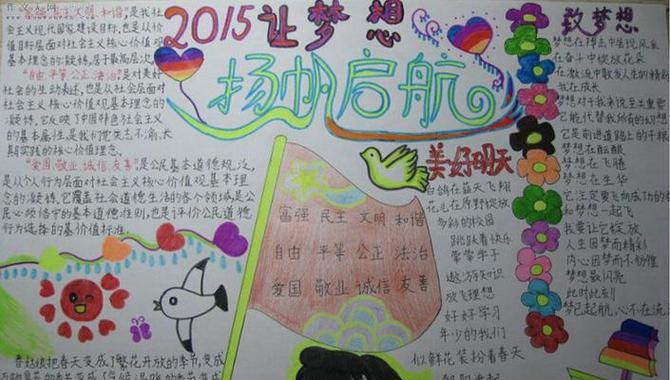 2015让梦想
扬帆启航
"富强、民主、文明、和谐"是我社
会主义现代国家建设目标,也是从价
值目标层面对社会主义核心价值观
基本理念的凝练,居于最高层次
"自由、平等、公正、法治"是对美好
社会的生动表述,也是从社会层面对
社会主义核心价值观基本理念的
凝练,它反映了中国特色社会主义
的基本属性,是我们党矢志不渝,长
期实践的核心价值理念。
"爱国、敬业、诚信、友善"是公民基本道德规范,
是从个人行为层面对社会主义核心价值观基本理
念的凝练,它覆盖社会道德生活的各个领域,是公
民必须恪守的基本道德准则,也是评价公民道德
行为选择的基价值标准。
春姑娘把春天变成了繁花开放的季节,变成
富强 民主 文明 和谐
自由 平等 公正 法治
爱国 敬业 诚信 友善
美好明天
白鸽在蓝天飞翔
花儿在原野绽放
多彩的校园
跳跃着快乐
莘莘学子
遨游知识
放飞理想
好好学习
年少的我们
似鲜花装扮着春天
致梦想
梦想在搏击中展现风采
在奋斗中绽放花朵
在激流中散发人生的精彩
我在成长
梦想对于我来说至关重要
它能代替我所有的幻想
它是前进道路上的干粮
梦想在酝酿
梦想在飞腾
梦想在生华
它注定要飞向成功的
和梦想一起飞
我要让它绽放
人生因梦而精彩
内心因梦而不彷徨
梦想最闪亮
此时此刻
梦已起航,心不在流